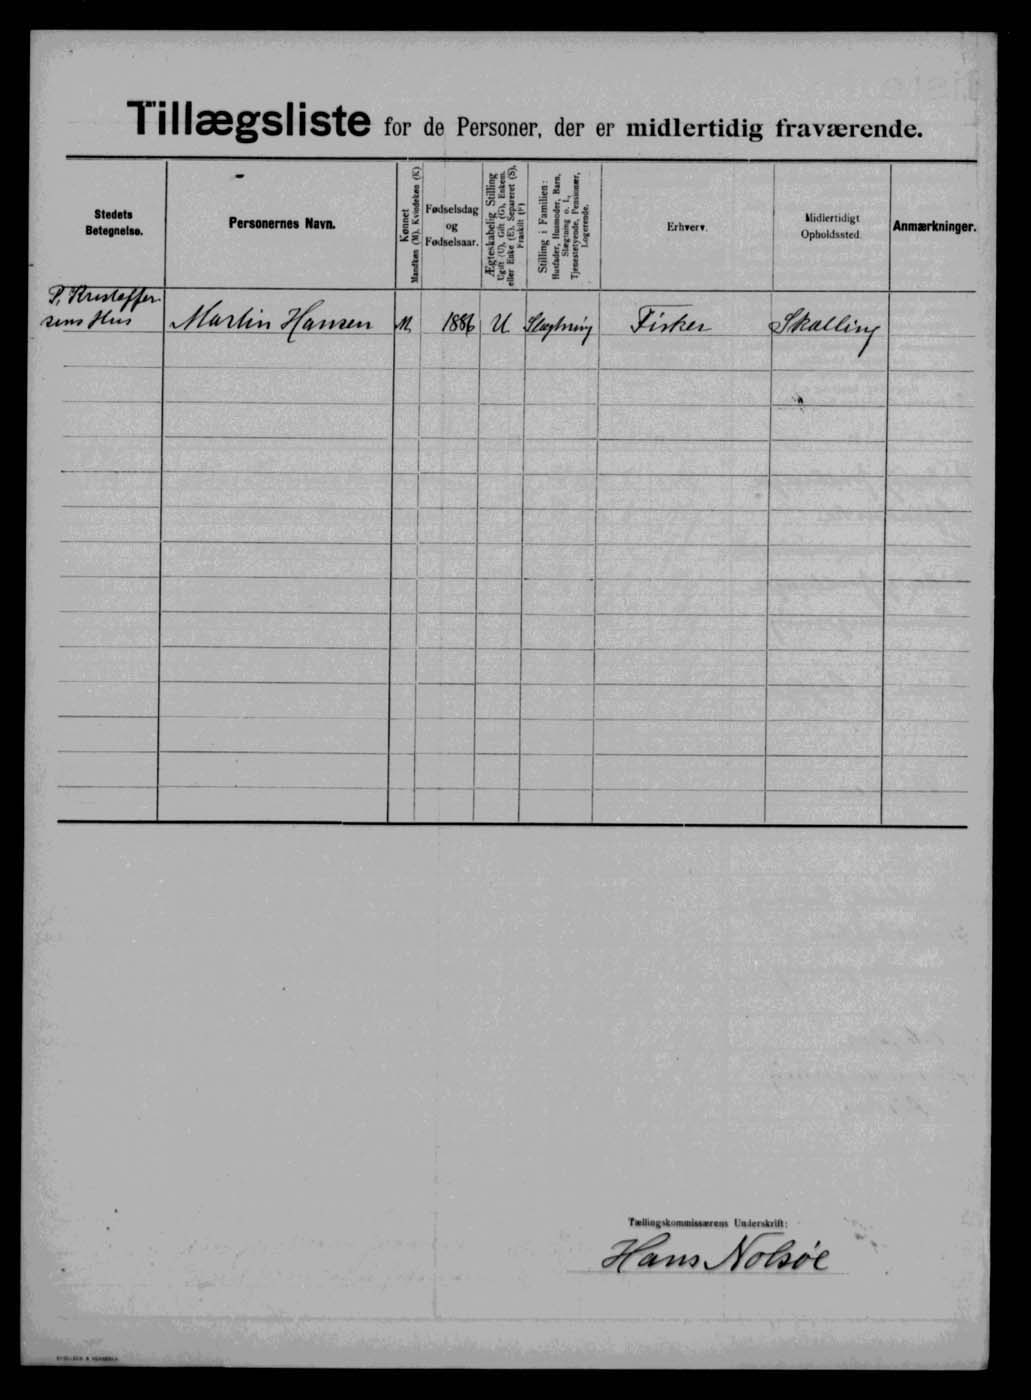 Tillægsliste for de Personer, der er midlertidig fraværende.
Stedets
Betegnelse.
Personernes Navn.
Kønnet
Mandkøn (M). Kvindekøn (K)
Fødselsdag
og
Fødselsaar.
Ægteskabelig Stilling
Ugift (U), Gift (G), Enkem.
eller Enke (E), Separeret (S),
Fraskilt (F)
Stilling i Familien:
Husfader, Husmoder, Barn,
Slægtning o. l.,
Tjenestetyende, Pensionær,
Logerende.
Erhverv.
Midlertidigt
Opholdssted.
Anmærkninger.
P. Kristoffer
sens Hus
Martin Hansen
M.
1886
U
Slægtning
Fisker
Skalling
Tællingskommissærens Underskrift:
Hans Nolsøe